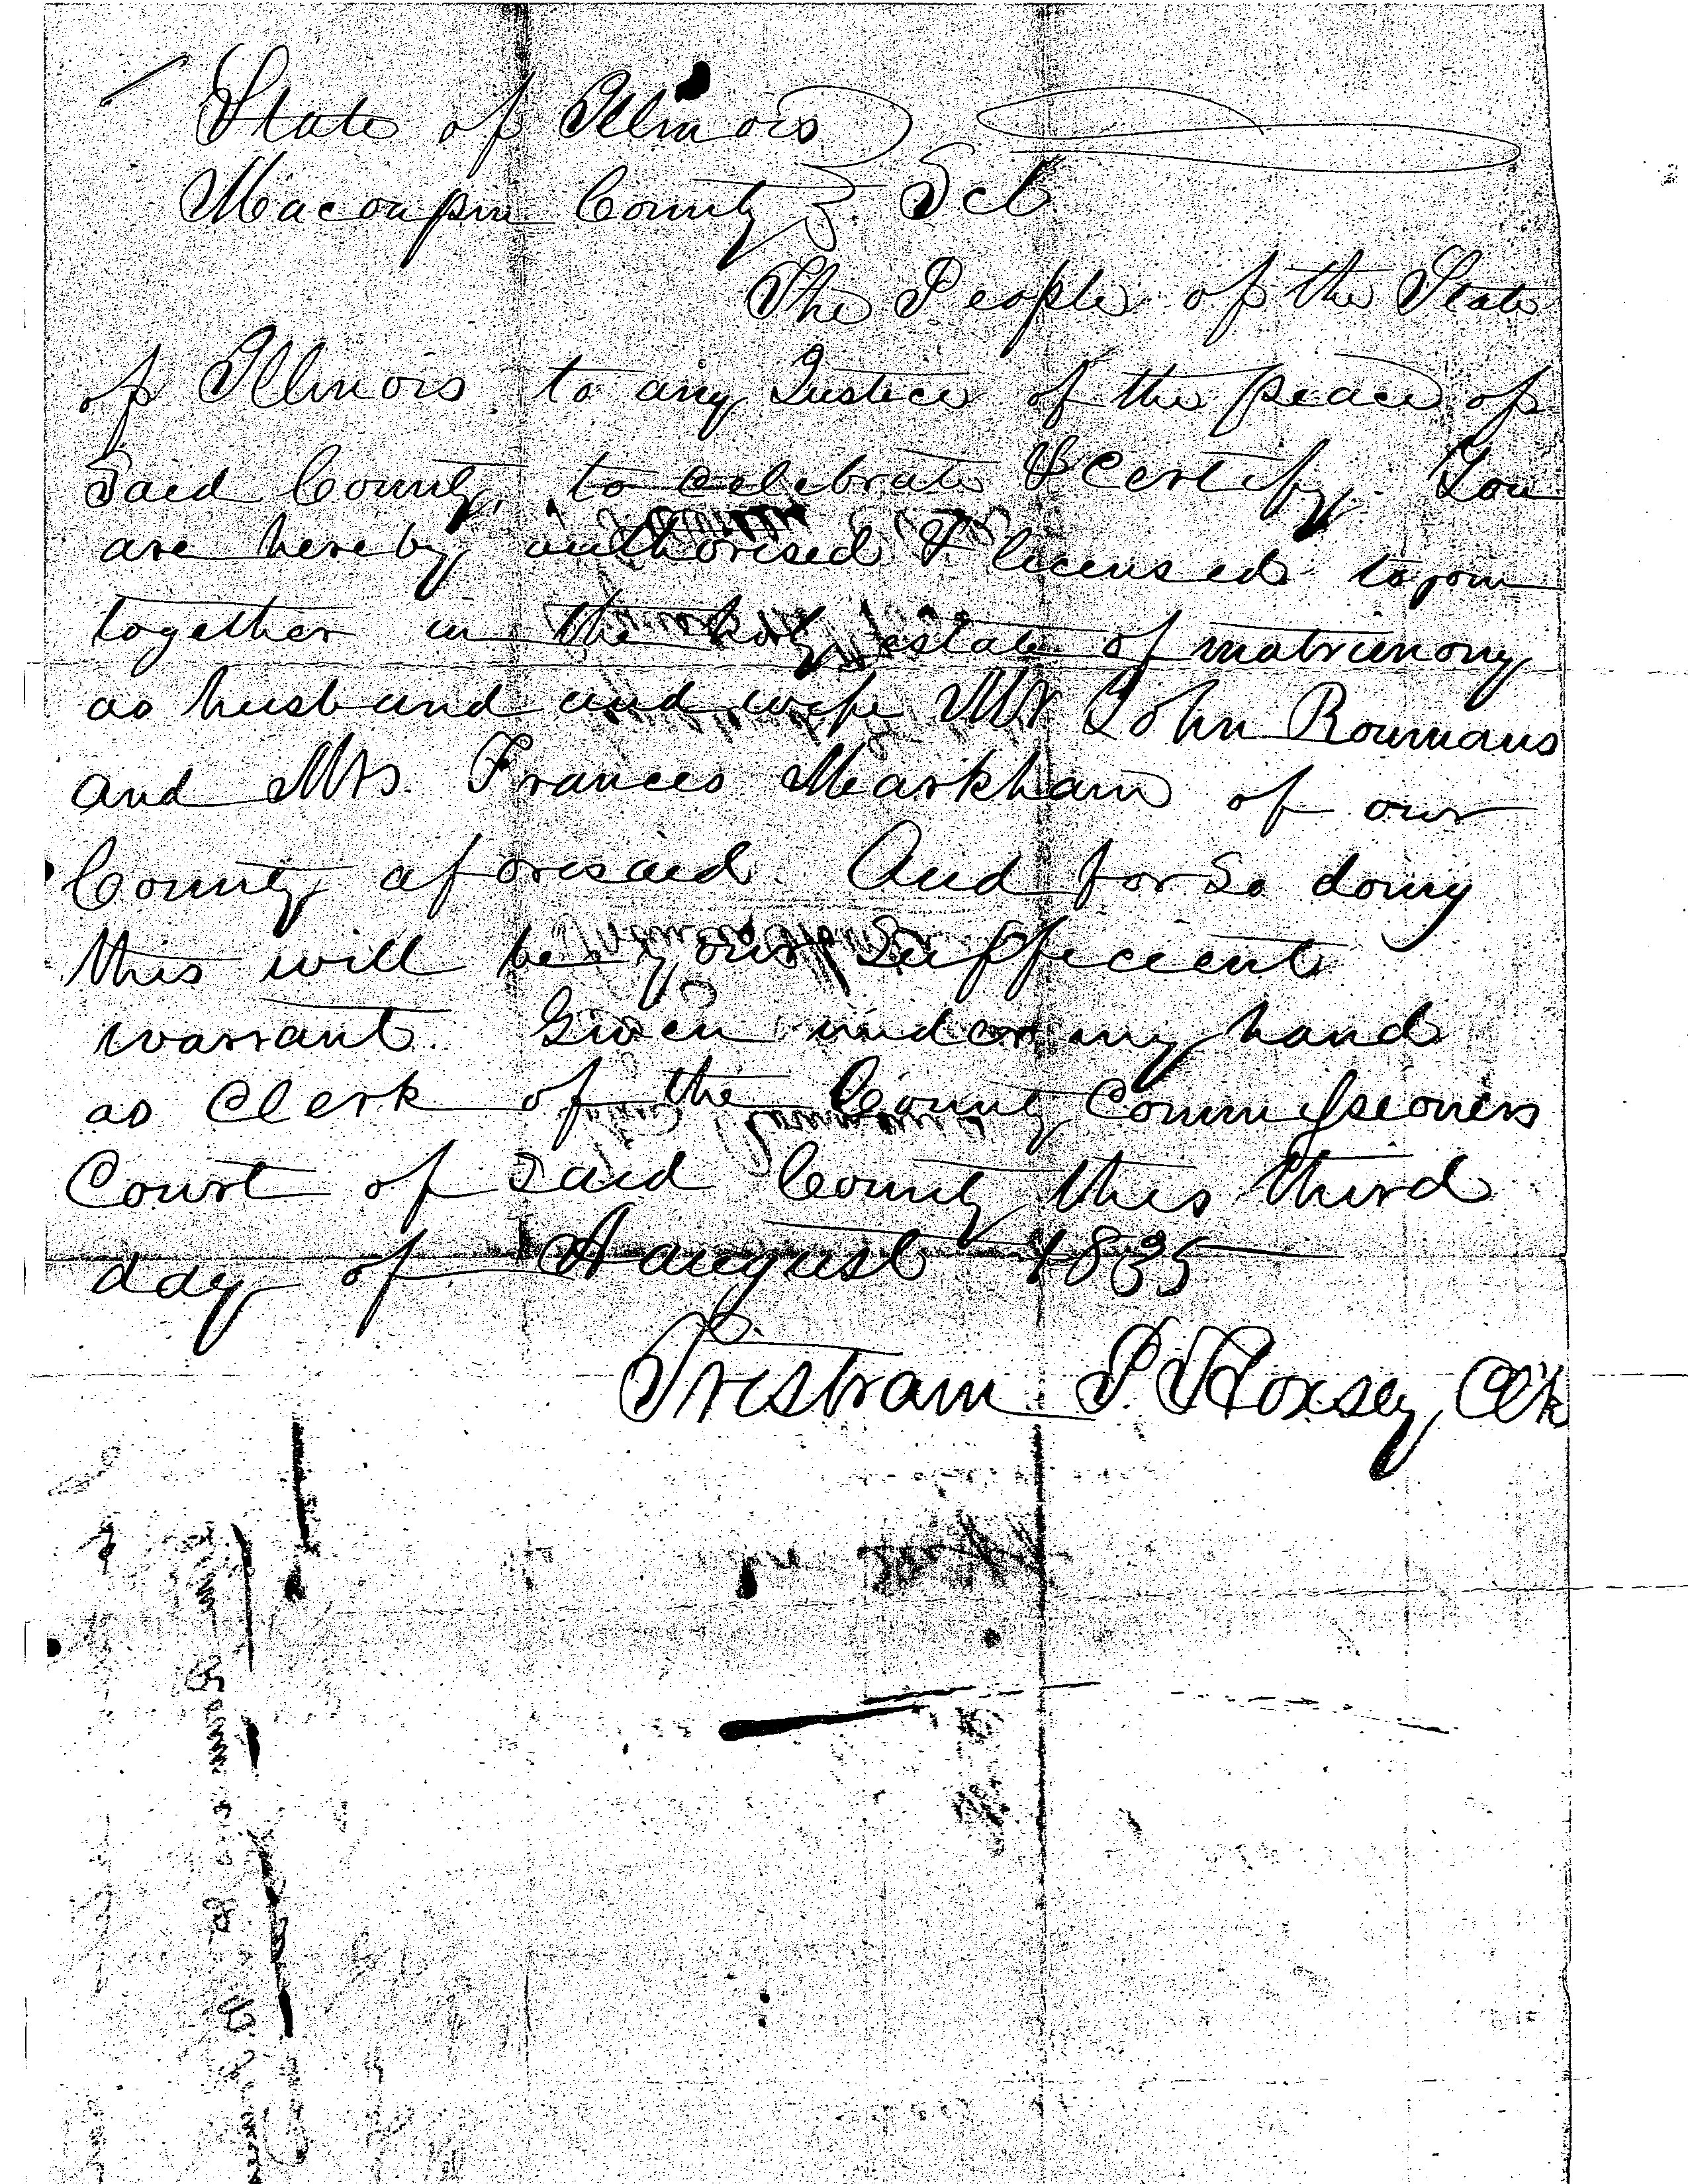 State of Illinois
Macoupin County Sct
The People of the State
of Illinois to any Justice of the peace of
Said County, to celebrate & Certify. You
are hereby authorised & licensed to join
together in the holy estate of matrimony
as husband and wife Mr John Roumans
and Mrs. Frances Markham of our
County aforesaid. And for So doing
this will be your Sufficient
warrant. Given under my hand
as Clerk of the County Commissioners
Court of Said County this third
day of August 1835
Tristram P. Hoxsey, Clk